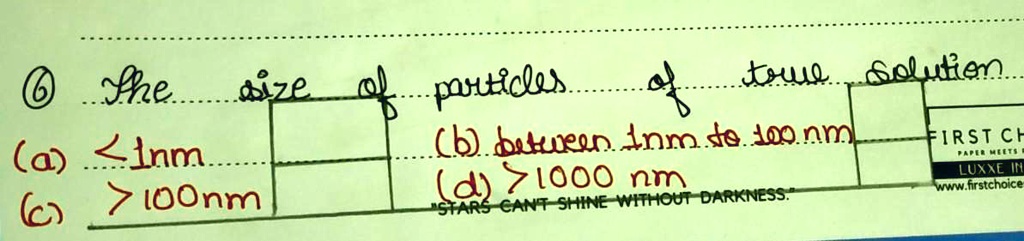 ⑥ The size of particles of true solution
(a) <1nm (b) between 1nm to 100 nm
(c) >100nm (d) >1000 nm
"STARS CAN'T SHINE WITHOUT DARKNESS."
FIRST CH
PAPER MEETS
LUXXE IN
www.firstchoice